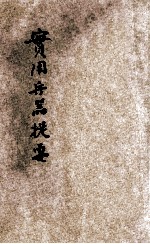 實用兵器提要